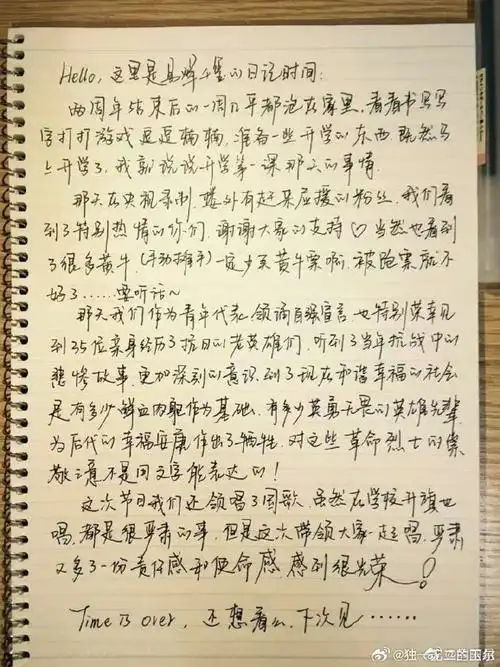 Hello, 这里是易烊千玺的日记时间:
两周年结束后的一周几乎都泡在家里, 看看书写写
字打打游戏逗逗楠楠, 准备一些开学的东西 既然马
上开学了, 我就说说开学第一课那天的事情.
那天在央视录制 楼外有赶来应援的粉丝, 我们看
到了特别热情的你们, 谢谢大家的支持♡ 当然也看到
了很多黄牛, (手动拜手) 一定少买黄牛票啊, 被跑票就不
好了……要听话~
那天我们作为青年代表 领诵自强宣言 也特别荣幸见
到35位亲身经历了抗日的老英雄们, 听到了当年抗战中的
悲惨故事, 更加深刻的意识到了现在和谐幸福的社会
是有多少鲜血肉躯作为基础, 有多少英勇无畏的英雄先辈
为后代的幸福安康作出了牺牲. 对这些革命烈士的崇
敬之意不是用文字能表达的!
这次节目我们还领唱了国歌, 虽然在学校升旗也
唱, 都是很严肃的事, 但是这次带领大家一起唱, 严肃
又多了一份责任感和使命感, 感到很光荣!
Time is over, 还想看么, 下次见……